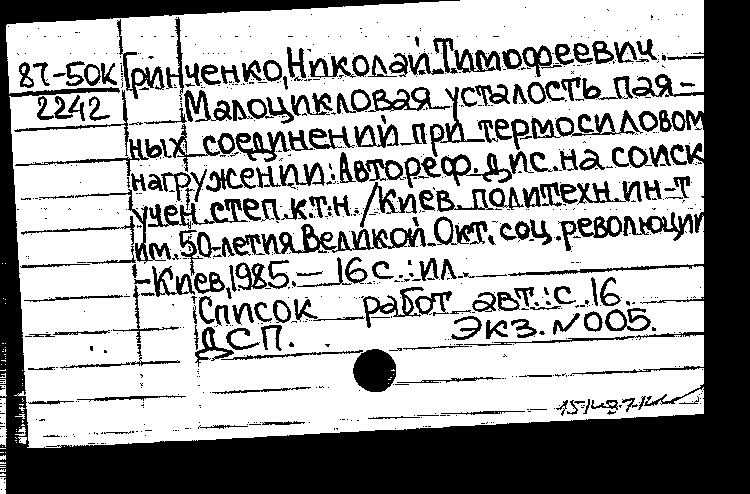 87-50К Гринченко, Николай Тимофеевич.
2242 Малоцикловая усталость пая-
ных соединений при термосиловом
нагружении: Автореф. дис. на соиск
учен. степ. к.т.н. / Киев. политехн. ин-т
им. 50-летия Великой Окт. соц. революции
-Киев, 1985. — 16 с.: ил.
Список работ авт.: с. 16.
ДСП. Экз. N 005.